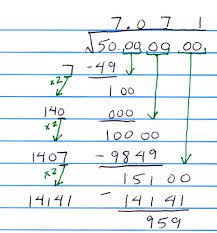 7.071
√50.00 00 00
7 -49
x2 1 00
140 000
x2 100 00
1407 -9849
x2 151 00
14141 - 141 41
959